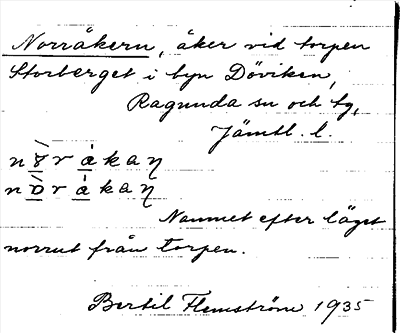 Norråkern, åker vid torpen
Storberget i byn Döviken,
Ragunda sn och tg,
Jämtl. l.
Namnet efter läget
norrut från torpen.
Bertil Flemström 1935